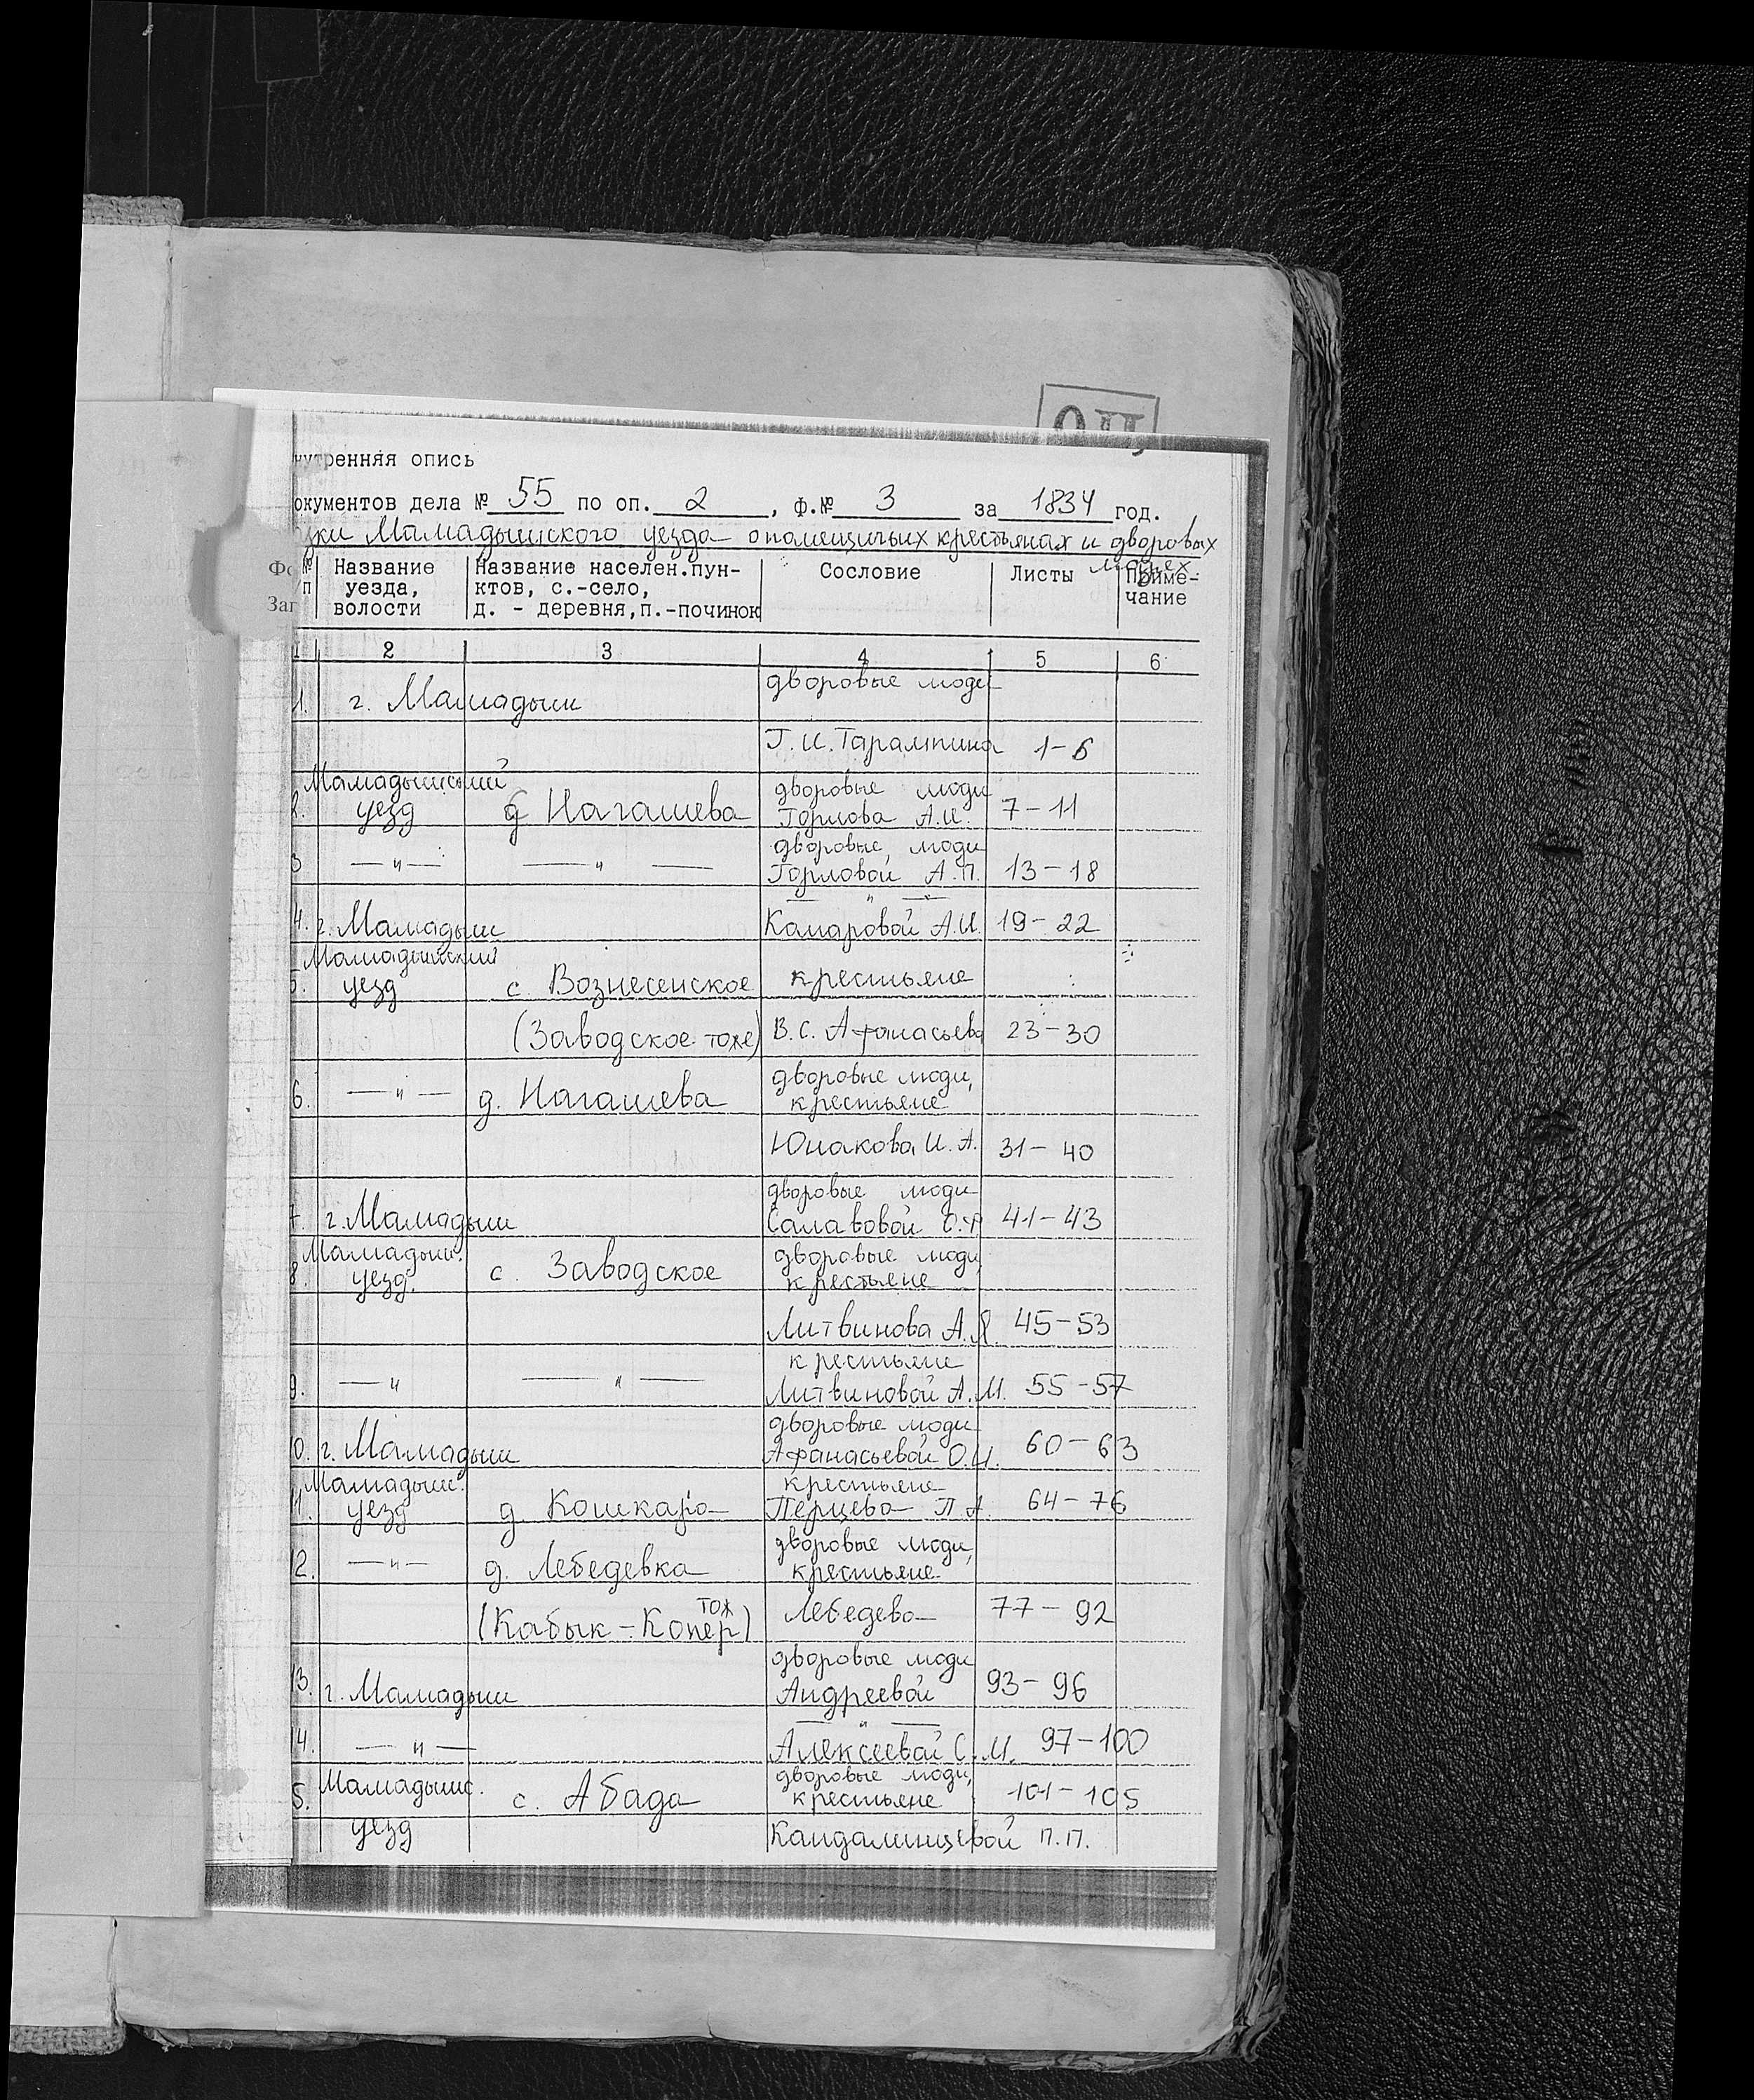 нутренняя опись
окументов дела № 55 по оп. 2, ф.№ 3 за 1834 год.
зки Мамадышского уезда о помещичьих крестьянах и дворовых
людях
№ Название Название населен.пун- Сословие Листы Приме-
п уезда, ктов, с.-село, чание
волости д. - деревня, п.-починок
1 2 3 4 5 6
1. г. Мамадыш дворовые люди
Г. И. Тарампина 1-6
Мамадышский дворовые люди
2. уезд д Нагашева Горлова А.И. 7-11
дворовые люди
3 —"— —"— Горловой А.П. 13-18
—"—
4. г. Мамадыш Камаровой А.И. 19-22
Мамадышский
5. уезд с Вознесенское крестьяне
(Заводское тоже) В.С. Афанасьева 23-30
дворовые люди,
6. —"— д. Нагашева крестьяне
Юшакова И. А. 31-40
дворовые люди
7. г. Мамадыш Салавовой О.Ф 41-43
Мамадыш. дворовые люди
8. уезд. с. Заводское крестьяне
Литвинова А.Я. 45-53
крестьяне
9. —" —"— Литвиновой А.М. 55-57
дворовые люди
0. г. Мамадыш Афанасьевой О.И. 60-63
Мамадыш. крестьяне
11. уезд д. Кошкара Перцева П А. 64-76
дворовые люди,
12. —"— д. Лебедевка крестьяне
(Кабык-Копер тож) Лебедева 77-92
дворовые люди
13. г. Мамадыш Андреевой 93-96
—"—
14. —"— Алексеевой С.М. 97-100
Мамадышс. дворовые люди,
5. с. Абада крестьяне 101-105
уезд Кандалинцевой П.П.